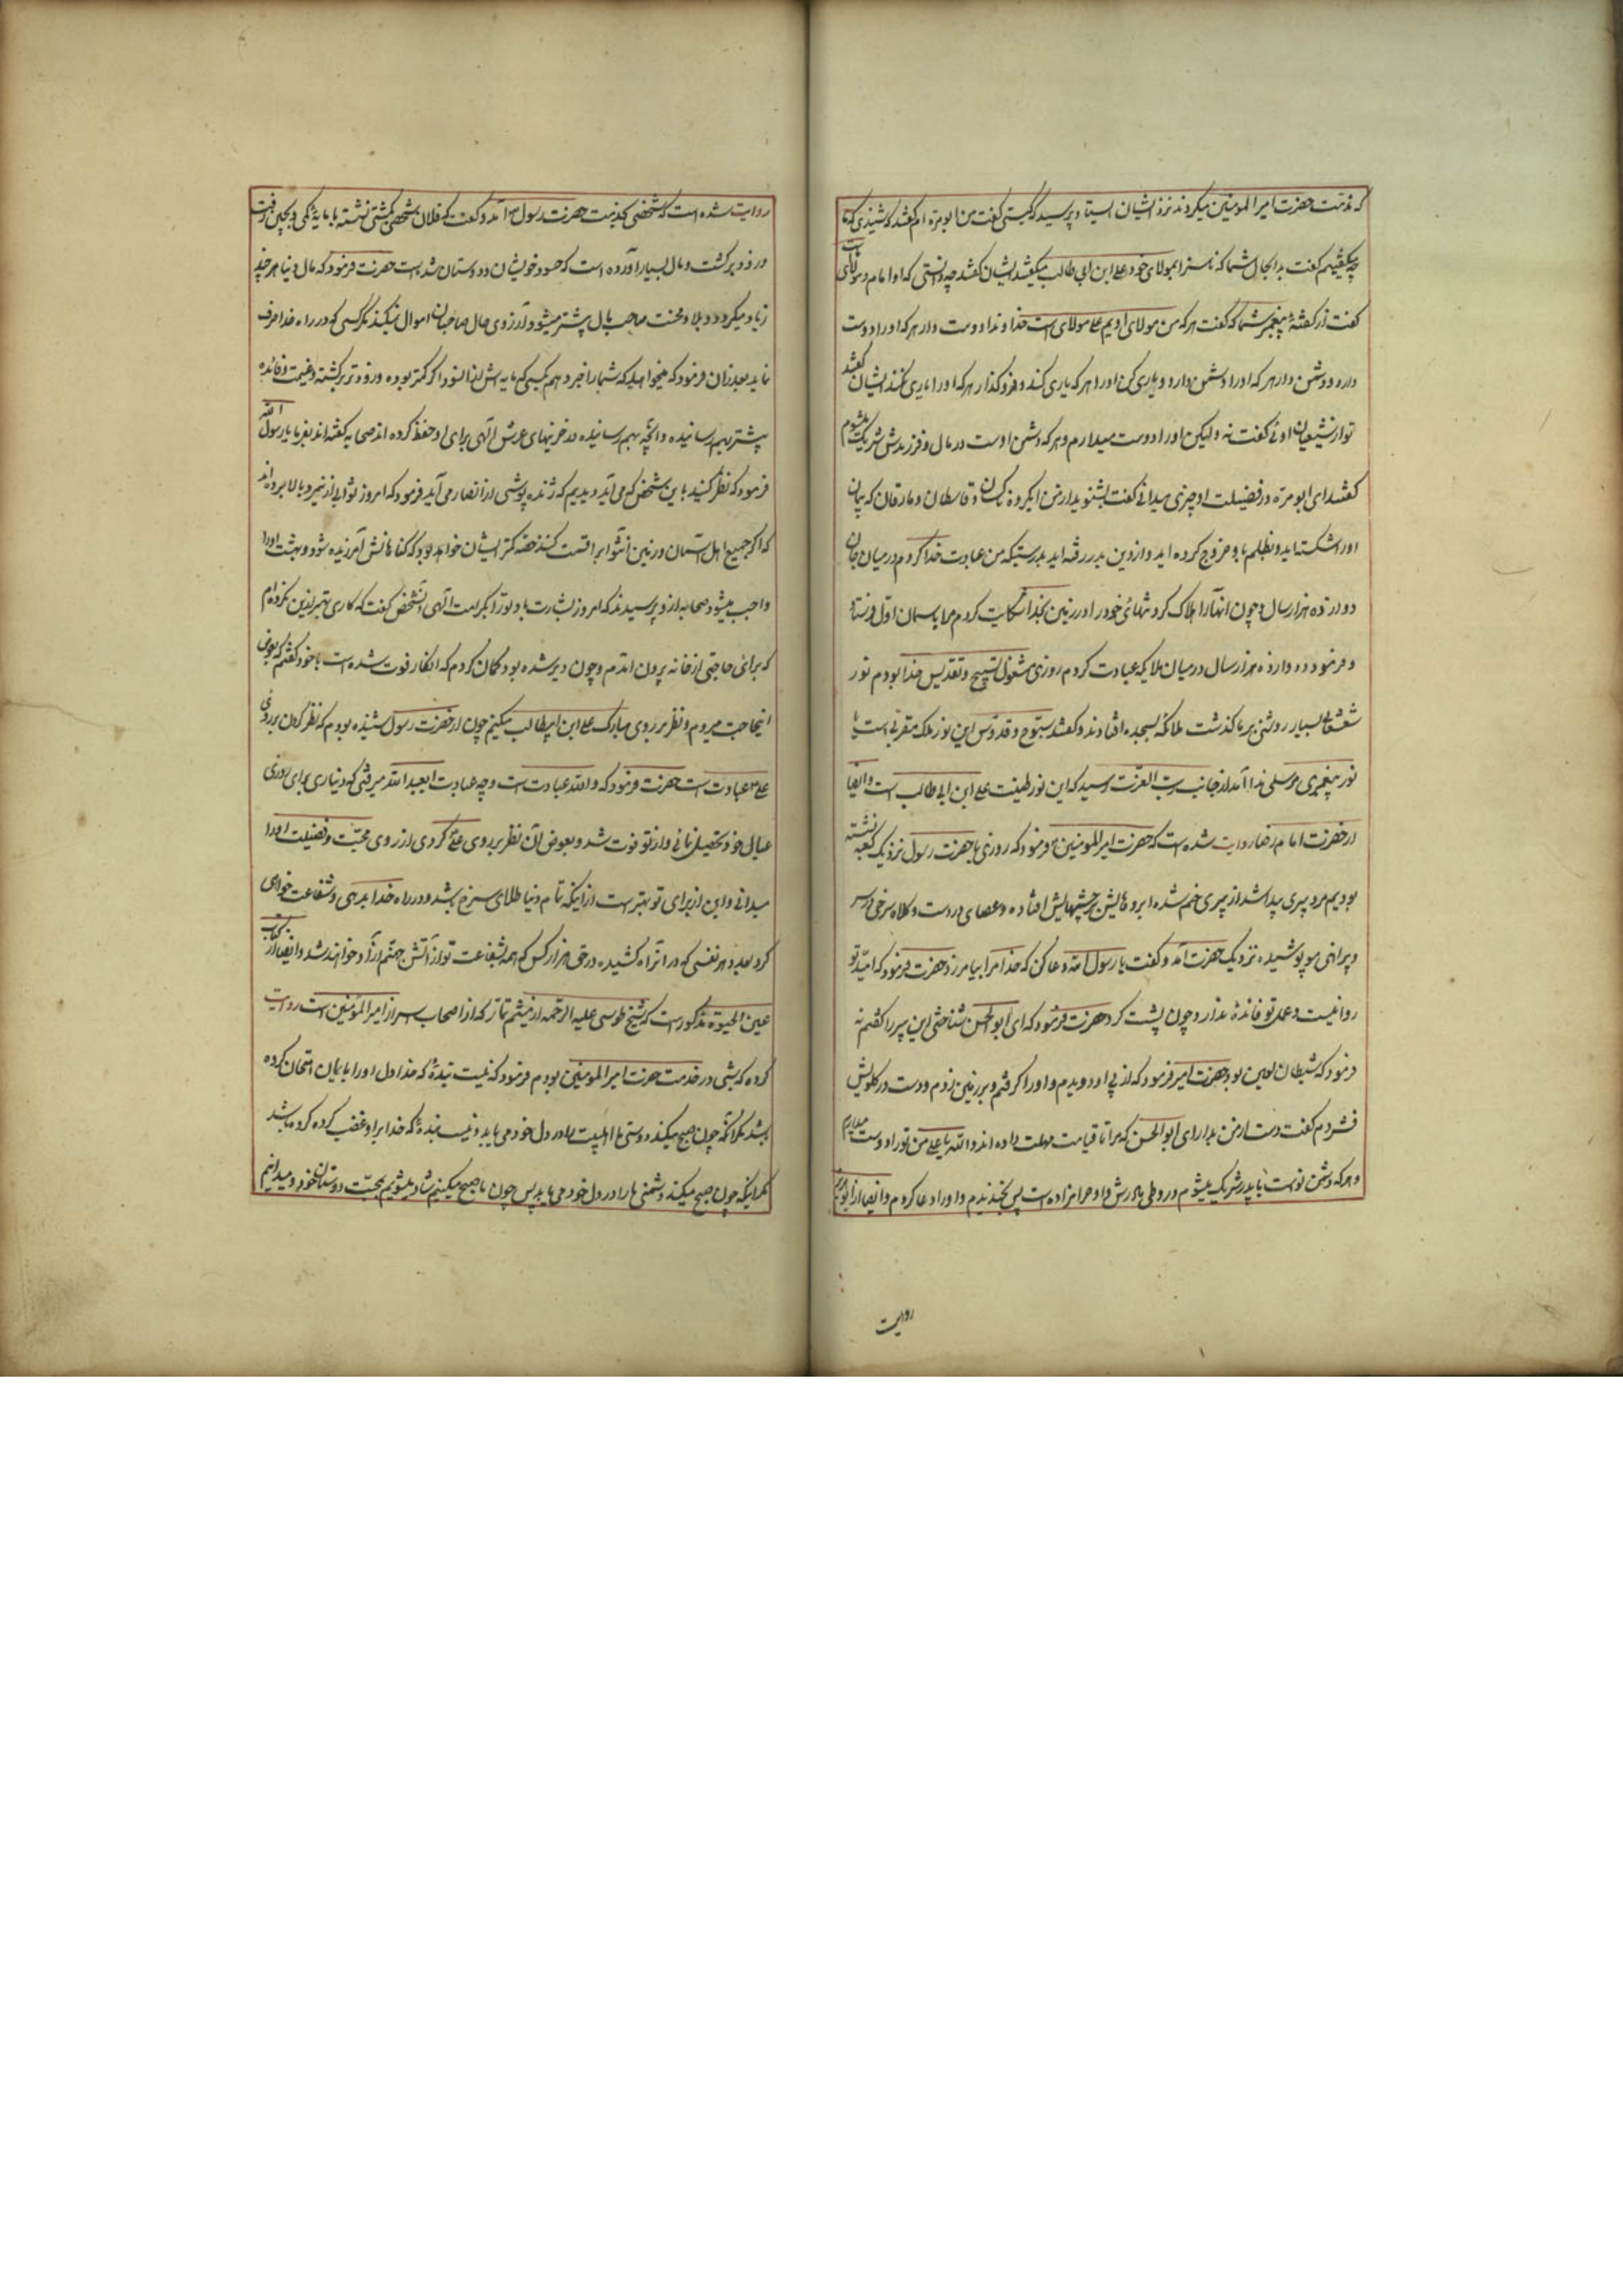 که مذمت حضرت امیر المومنین میکردند نزد ایشان ایستاد و پرسید که کیستی گفت من ابو مرّه ام گفتند که شنیدی که ما
چه میگفتیم گفت بدا بحال شما که ناسزا بمولای خود علی ابن ابی طالب میگفتید ایشان گفتند چه دانستی که او امام و مولای ماست
گفت از گفتهٔ پیغمبر شما که گفت هر که من مولای اویم علی مولای است خداوندا دوست دار هر که او را دوست
دارد و دشمن دار هر که او را دشمن دارد و یاری کن او را هر که یاری کند و فرو گذار هر که او را یاری نکند ایشان گفتند
تو از شیعیان اوئی گفت نه ولیکن او را دوست میدارم و هر که دشمن اوست در مال و فرزندش شریک میشوم
گفتند ای ابو مرّه در فضیلت او چیزی میدانی گفت بشنوید از من ای گروه ناکثان و قاسطان و مارقان که پیمان
او را شکسته اید و بظلم با او خروج کرده اید و از دین بدر رفته اید بدرستیکه من عبادت خدا کردم در میان جان
دوازده هزار سال و چون آنها را هلاک کرد تنهائی خود را در زمین بخدا شکایت کردم مرا باسمان اوّل فرستاد
و فرمود و دوازده هزار سال در میان ملایکه عبادت کردم روزی مشغول تسبیح و تقدیس خدا بودم نور
شعشعانی بسیار روشنی بر ما گذشت ملائکه بسجده افتادند و گفتند سبّوح و قدّوس این نور ملک مقرّبی است یا
نور پیغمبری مرسلی ندا آمد از جانب رب العزّت رسید که این نور طینت علی ابن ابی طالب است و ایضا
از حضرت امام رضا روایت شده است که حضرت امیر المومنین فرمود که روزی با حضرت رسول نزدیک کعبه نشسته
بودیم مرد پیری پیدا شد از پیری خم شده ابروهایش بر چشمهایش افتاده و عصای در دست و کلاه سرخی در سر
و پیراهن مو پوشیده نزدیک حضرت آمد و گفت یا رسول الله دعا کن که خدا مرا بیامرزد حضرت فرمود که امید تو
روا نیست و عمل تو فائدهٔ ندارد چون پشت کرد حضرت فرمود که ای ابو الحسن شناختی این پیر را گفتم نه
فرمود که شیطان لعین بود حضرت امیر فرمود که از پی او دویدم و او را گرفتم و بر زمین زدم و دست در گلویش
فشردم گفت دست از من بدار ای ابو الحسن که مرا تا قیامت مهلت داده اند و الله یا علی من تو را دوست میدارم
و هر که دشمن توست با پدرش شریک میشوم در وطی مادرش و او حرامزاده است پس بخندیدم و او را رها کردم و ایضا از
روایت
روایت شده است که شخصی بخدمت حضرت رسول آمد و گفت که فلان شخص بکشتی نشسته با مایهٔ کمی و بچین رفت
و زود برگشت و مال بسیار آورده است که حسود خویشان و دوستان شده است حضرت فرمود که مال دنیا هر چند
زیاد میگردد و بلا و محنت صاحب مال بیشتر میشود و آرزوی حال صاحبان اموال نمیکند مگر کسی که در راه خدا صرف
نماید بعد از آن فرمود که میخواهید که شما را خبر دهم بکسی که مایه اش از آنمرد کمتر بوده و زودتر برگشته و غنیمت و فائده
بیشتر بهم رسانیده و آنچه بهم رسانیده در خزینهای عرش الهی برای او حفظ کرده اند صحابه گفته اند بفرما یا رسول الله
فرمود که نظر کنید باین شخص که می آید دیدیم که ژنده پوشی از انصار می آید فرمود که امروز ثوابی از نمیرد بالا برده اند
که اگر جمیع اهل آسمان و زمین آنثوابرا قسمت کنند حصّه کمتر ایشان خواهد بود که گناهانش آمرزیده شود و بهشت او را
واجب میشود صحابه از او پرسیدند که امروز بشارت باد تو را بکرامت الهی آنشخص گفت که کاری بهتر از این نکرده ام
که برای حاجتی از خانه بیرون آمدم و چون دیر شده بود گمان کردم که آنکار فوت شده است با خود گفتم که بعوض
آنحاجت میروم و نظر بر روی مبارک علی ابن ابیطالب میکنم چون از حضرت رسول شنیده بودم که نظر کردن بر روی
علی عبادت است حضرت فرمود که و الله عبادت است و چه عبادت ای عبد الله میرفتی که دیناری برای روزی
عیال خود تحصیل نمائی و از تو فوت شد و بعوض آن نظر بر روی علی کردی از روی محبّت و فضیلت او را
میدانی و این از برای تو بهتر است از اینکه تمام دنیا طلای سرخ باشد و در راه خدا بدهی و شفاعت خواهی
کرد بعدد هر نفسی که در آنراه کشیده در حق هزار کس که همه بشفاعت تو از آتش جهنّم آزاد خواهند شد و ایضا در کتاب
عین الحیوة مذکور است که شیخ طوسی علیه الرحمه از میثم تمّار که از اصحاب اسرار امیر المؤمنین است روایت
کرده که شبی در خدمت حضرت امیر المومنین بودم فرمود که نیست بندهٔ که خدا دل او را بایمان امتحان کرده
باشد مگر آنکه چون صبح میکند دوستی ما اهلبیت را در دل خود می یابد و نیست بندهٔ که خدا بر او غضب کرده کرده باشد
مگر اینکه چون صبح میکند دشمنی ما را در دل خود می یابد پس چون ما صبح میکنیم شاد میشویم بمحبّت دوستان خود و میدانیم